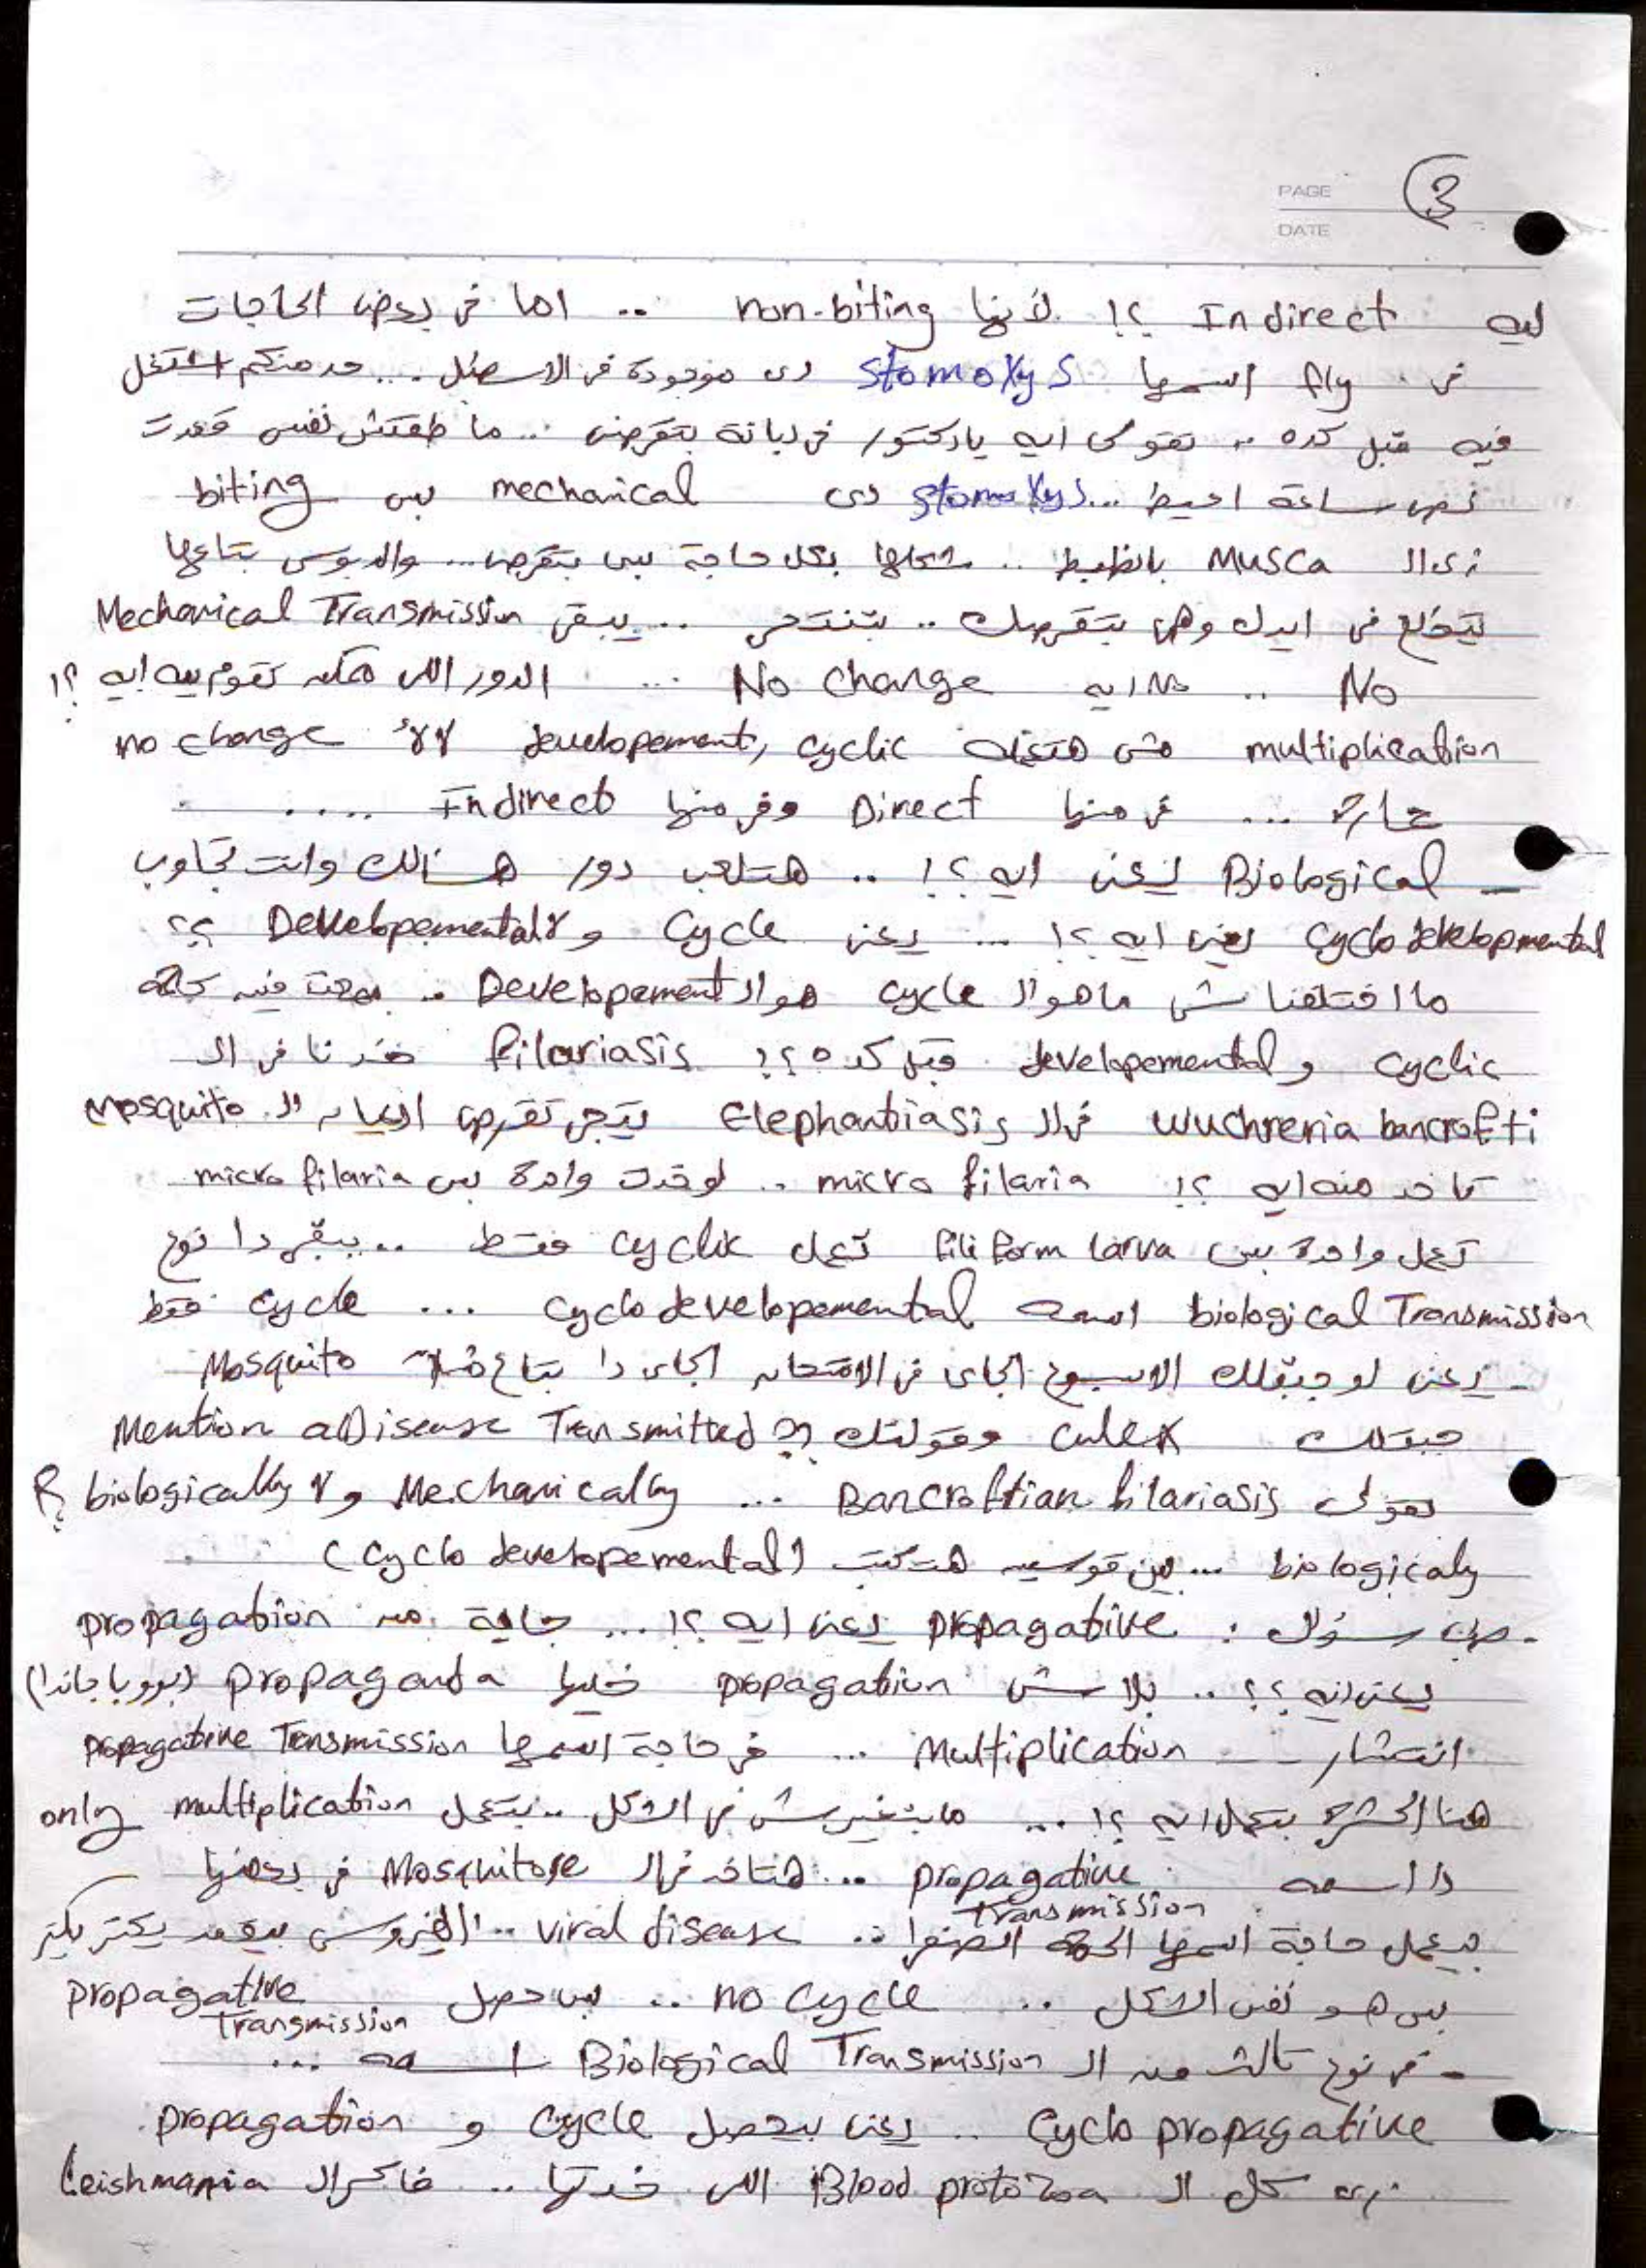 PAGE 3
DATE
ليه Indirect ؟! لأنها non-biting .. اما فى بعض الحاجات
فى fly اسمها Stomoxys دى موجودة فى الاسطبل ... حد منكم اشتغل
فيه قبل كده .. تقولى ايه يا دكتور فى دبانة بتقرصنى .. ما طقتش نفسى قعدت
نص ساعة اعيط ... Stomoxys دى mechanical بس biting
زى الـ Musca بالظبط .. شكلها بكل حاجة بس بتقرص ... والدبوس بتاعها
بيطلع فى ايدك وهى بتقرصك .. بتنتحر .. يبقى Mechanical Transmission
No .. ايه No change ... الدور اللى ممكن تقوم بيه ايه ؟!
multiplication مش هتعمله cyclic , developement لالأ no change
خالص ... فى منها Direct وفى منها Indirect .....
- Biological يعنى ايه ؟! .. هتلعب دور هسألك وانت تجاوب
cyclo developmental يعنى ايه ؟! ... يعنى cycle ولا Developemental ؟؟
ما اختلفناش ما هو الـ cycle هو الـ Developement .. سمعت فيه حاجة
cyclic و developemental قبل كده ؟! filariasis خدنا فى الـ
Wuchreria bancrofti فى الـ Elephantiasis بتيجى تقرص العيان الـ mosquito
تاخد منه ايه ؟! micro filaria .. لو خدت واحدة بس micro filaria
تعمل واحدة بس filiform larva تعمل cyclic فقط .. يبقى دا نوع
biological Transmission اسمه cyclo developemental ... cycle فقط
- يعنى لو جبتلك الاسبوع الجاى فى الامتحان الجاى دا بتاع مثلا Mosquito
جبتلك culex وقولتلك ؟؟ Mention a Disease Transmitted
تقولى Bancroftian filariasis ... Mechanically ولا biologically ؟
biologicaly ... بين قوسين هتكتب (cyclo developemental)
- طب سؤال : propagative يعنى ايه ؟! ... جاية من propagation
يعنى ايه ؟؟ .. بلاش propagation خليها propaganda (بروباجاندا)
انتشار - Multiplication ... فى حاجة اسمها propagative Transmission
هنا الحشرة بتعمل ايه ؟! ... ما بتغيرش فى الشكل .. بتعمل multiplication only
دا اسمه propagative Transmission .. هتاخد فى الـ Mosquitose فى بعضها
بيعمل حاجة اسمها الحمى الصفرا .. viral disease .. الفيروس بيقعد يكتر يكتر
بس هو نفس الشكل .. no cycle .. بس حصل propagative Transmission
- فى نوع تالت من الـ Biological Transmission اسمه ...
Cyclo propagative .. يعنى بيحصل cycle و propagation
زى كل الـ Blood protozoa اللى خدتها .. فاكر الـ leishmania